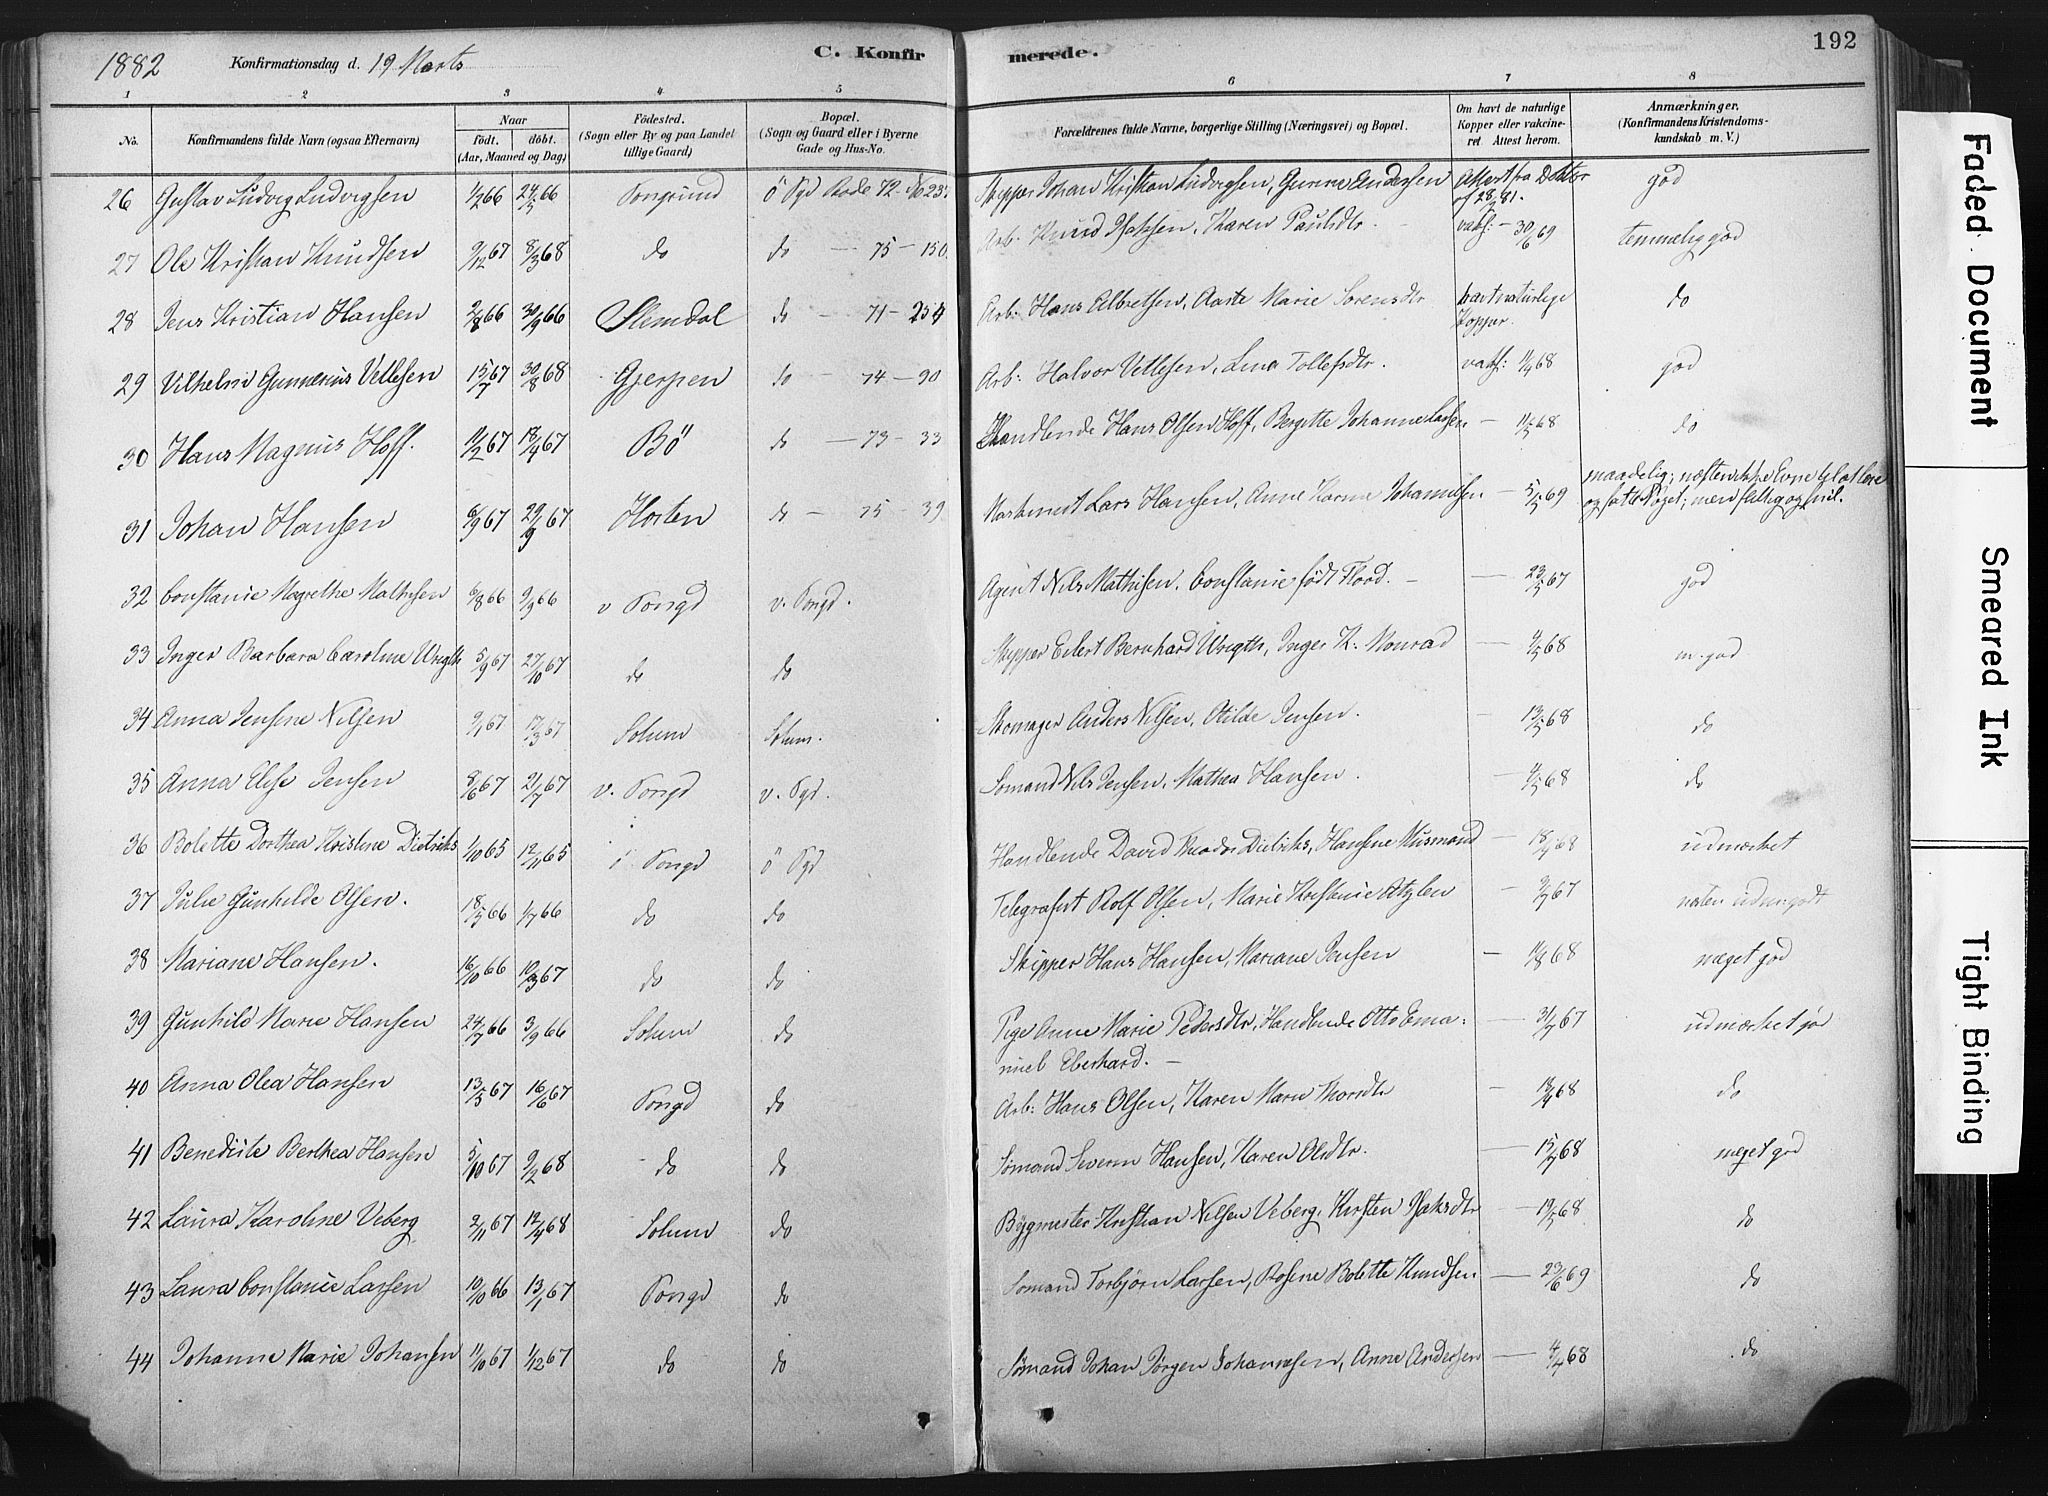 1882 Konfirmationsdag d. 19 Marts C. Konfir merede. 192
1 2 3 4 5 6 7 8
No. Konfirmandens fulde Navn (ogsaa Efternavn) Naar født. døbt. (Aar, Maaned og Dag) Födested. (Sogn eller By og paa Landet tillige Gaard) Bopæl. (Sogn og Gaard eller i Byerne Gade og Hus-No. Forældrenes fulde Navne, borgerlige Stilling (Næringsvei) og Bopæl. Om havt de naturlige Kopper eller vakcineret. Attest herom. Anmærkninger. (Konfirmandens Kristendomskundskab m. V.)
26 Gustav Ludvig Ludvigsen 1/2 66 24/5 66 Porsgrund Ö Pgd Rode 72 - No 237 Skipper Johan Kristian Ludvigsen, Gunne Andersen Attest fra Doktor af 28/2 81. god
27 Ole Kristian Knudsen 9/12 67 8/3 68 do do - 75 - 150. Arb. Knud Isaksen, Karen Paulsdtr. vakc: - 30/6 69 temmelig god
28 Jens Kristian Hansen 2/8 66 30/9 66 Slemdal do - 71 - 254 Arb: Hans Albretsen, Aaste Marie Sørensdtr havt naturlige Kopper. do
29 Vilhelm Gunnerius Vetlesen 15/7 67 30/8 68 Gjerpen do - 74 - 90 Arb: Halvor Vetlesen, Lina Tollefsdtr. vakc: 1/9 68 god
30 Hans Magnus Hoff. 11/2 67 18/4 67 Bö do - 73 - 33 Handlende Hans Olsen Hoff, Bergitte Johanne Larsen - 11/5 68 do
31 Johan Hansen 6/9 67 29/9 67 Horten do - 75 - 39 Maskinist Lars Hansen, Anne Karine Johannesen - 5/5 69 maadelig; næsten ikke Evne til at lære og fatte Noget; men flittig og snil.
32 Constanse Magrethe Mathisen 6/8 66 9/9 66 v Porsgd v. Porsgd. Agent Nils Mathisen, Constanse født Flood. - 23/5 67 god
33 Inger Barbara Caroline Wrigth 5/9 67 27/10 67 do do Skipper Eilert Bernhard Wrigth, Inger K. Monrad - 9/5 68 m. god
34 Anna Jensine Nilsen 9/1 67 17/3 67 Solum Solum. Skomager Anders Nilsen, Otilde Jensen. 13/5 68 do
35 Anna Elise Jensen 8/6 67 21/7 67 v. Porsgd v. Pgd. Sømand Nils Jensen, Mathea Hansen. - 9/5 68 do
36 Bolette Dorthea Kristine Dietrichs 1/10 65 12/11 65 ö Porsgd ö Pgd Handlende David Theodor Dietrichs, Hansine Musmand - 18/7 68 udmærket
37 Julie Gunhilde Olsen. 18/5 66 1/7 66 do do Telegrafist Rolf Olsen, Marie Kristense Atzlen - 9/7 67 næsten udm. godt
38 Mariane Hansen. 16/10 66 10/3 67 do do Skipper Hans Hansen, Mariane Jensen - 11/8 68 meget god
39 Gunhild Marie Hansen 24/7 66 3/9 66 Solum do Pige Anne Marie Pedersdtr, Handlende Otto Ema: - 31/7 67 udmærket god
nuel Eberhard. -
40 Anna Olea Hansen 13/5 67 16/6 67 Porsgd do Arb: Hans Olsen, Karen Marie Thorsdtr - 18/4 68 do
41 Benedicte Berthea Hansen 5/10 67 9/2 68 do do Sømand Severin Hansen, Karen Olsdtr. - 15/7 68 meget god
42 Laura Karoline Veberg 2/11 67 12/4 68 Solum do Bygmester Kristian Nilsen Veberg, Kirsten Isaksdtr - 19/5 68 do
43 Laura Constanse Larsen 10/10 66 13/1 67 Porsgd do Sømand Torbjørn Larsen, Rosine Bolette Knudsen - 23/6 69 do
44 Johanne Marie Johansen 11/10 67 1/12 67 do do Sømand Johan Jörgen Johannesen, Anne Andersen - 4/4 68 do
Faded Document
Smeared Ink
Tight Binding